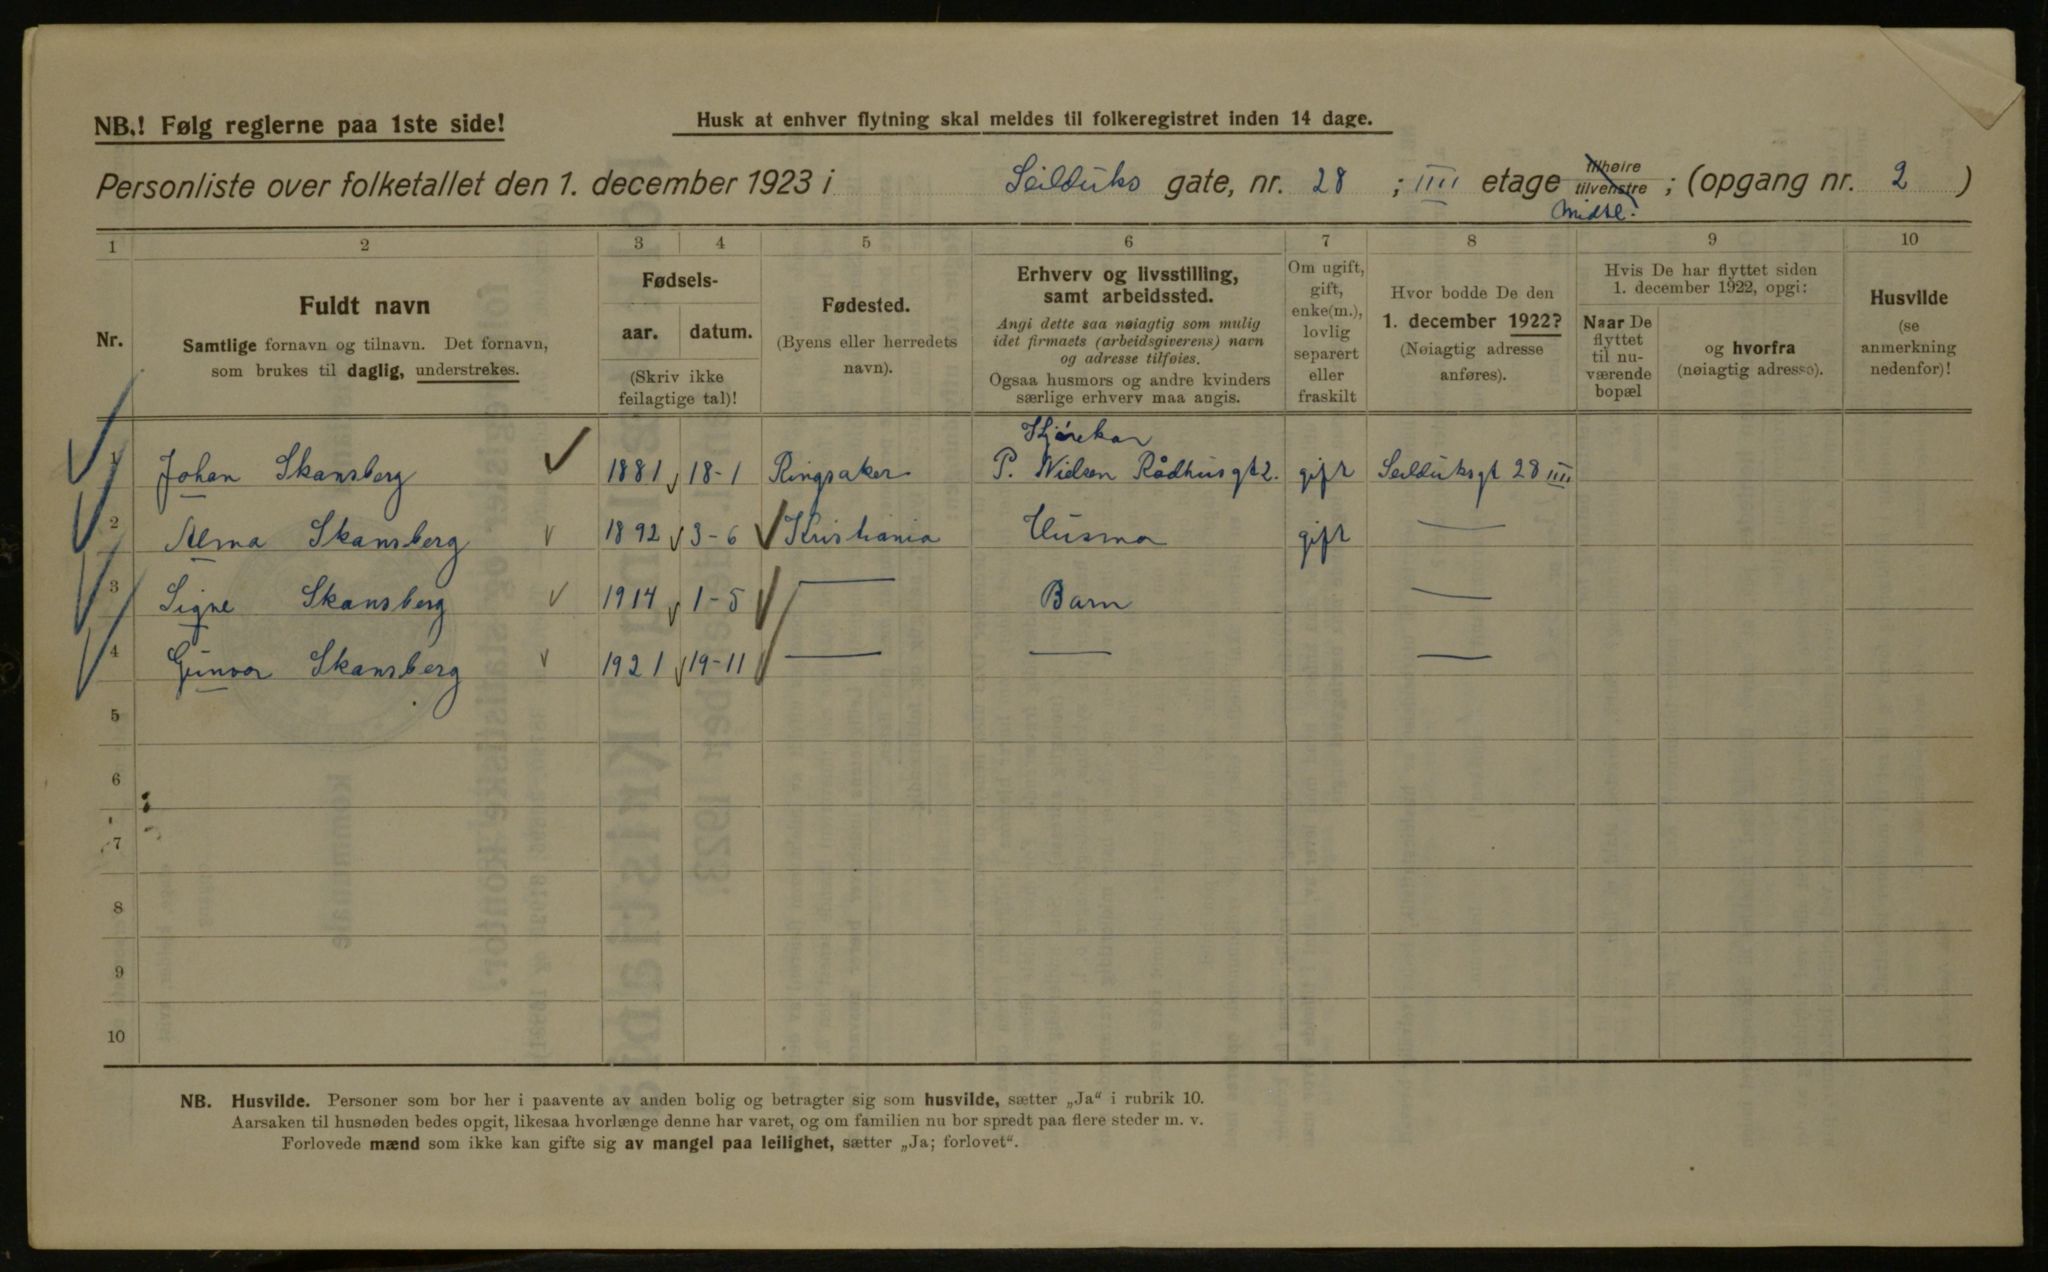 NB.! Følg reglerne paa 1ste side!
Husk at enhver flytning skal meldes til folkeregistret inden 14 dage.
Personliste over folketallet den 1. december 1923 i Seilduks gate, nr. 28 ; IIII etage tilhøire tilvenstre ; (opgang nr. 2 )
Midtl.
1 2 3 4 5 6 7 8 9 10
Nr.
Fuldt navn
Samtlige fornavn og tilnavn. Det fornavn,
som brukes til daglig, understrekes.
Fødsels-
aar. datum.
(Skriv ikke
feilagtige tal)!
Fødested.
(Byens eller herredets
navn).
Erhverv og livsstilling,
samt arbeidssted.
Angi dette saa nøiagtig som mulig
idet firmaets (arbeidsgiverens) navn
og adresse tilføies.
Ogsaa husmors og andre kvinders
særlige erhverv maa angis.
Om ugift,
gift,
enke(m.),
lovlig
separert
eller
fraskilt
Hvor bodde De den
1. december 1922?
(Nøiagtig adresse
anføres).
Hvis De har flyttet siden
1. december 1922, opgi:
Naar De
flyttet
til nu-
værende
bopæl
og hvorfra
(nøiagtig adresse).
Husvilde
(se
anmerkning
nedenfor)!
Kjørekar
1 Johan Skansberg 1881 18-1 Ringsaker P. Nielsen Rådhusgt 2. gift Seilduksgt 28 IIII
2 Alma Skansberg 1892 3-6 Kristiania Husmor gift —
3 Signe Skansberg 1914 1-5 — Barn —
4 Gunvor Skansberg 1921 19-11 — — —
5
6
7
8
9
10
NB. Husvilde. Personer som bor her i paavente av anden bolig og betragter sig som husvilde, sætter „Ja“ i rubrik 10.
Aarsaken til husnøden bedes opgit, likesaa hvorlænge denne har varet, og om familien nu bor spredt paa flere steder m. v.
Forlovede mænd som ikke kan gifte sig av mangel paa leilighet, sætter „Ja; forlovet“.